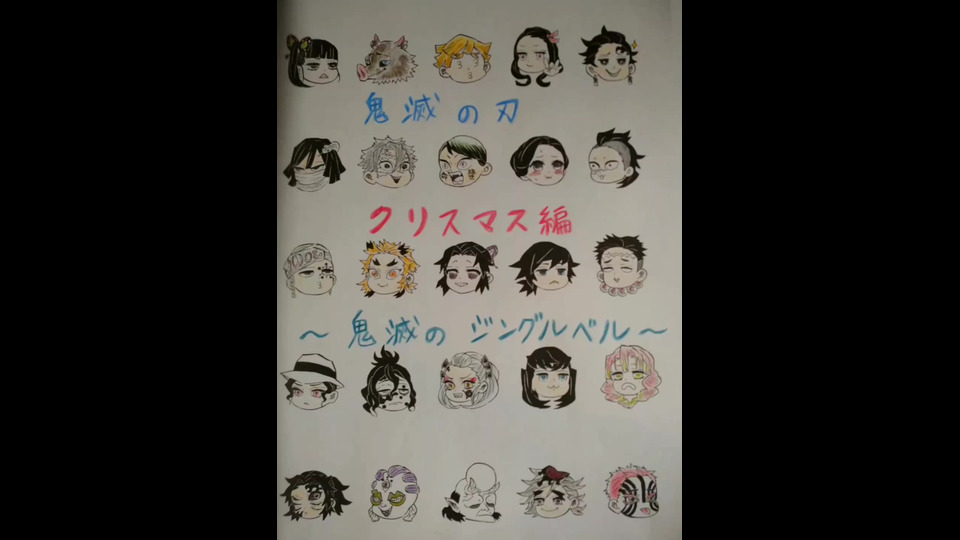 鬼滅の刃
クリスマス編
～鬼滅のジングルベル～